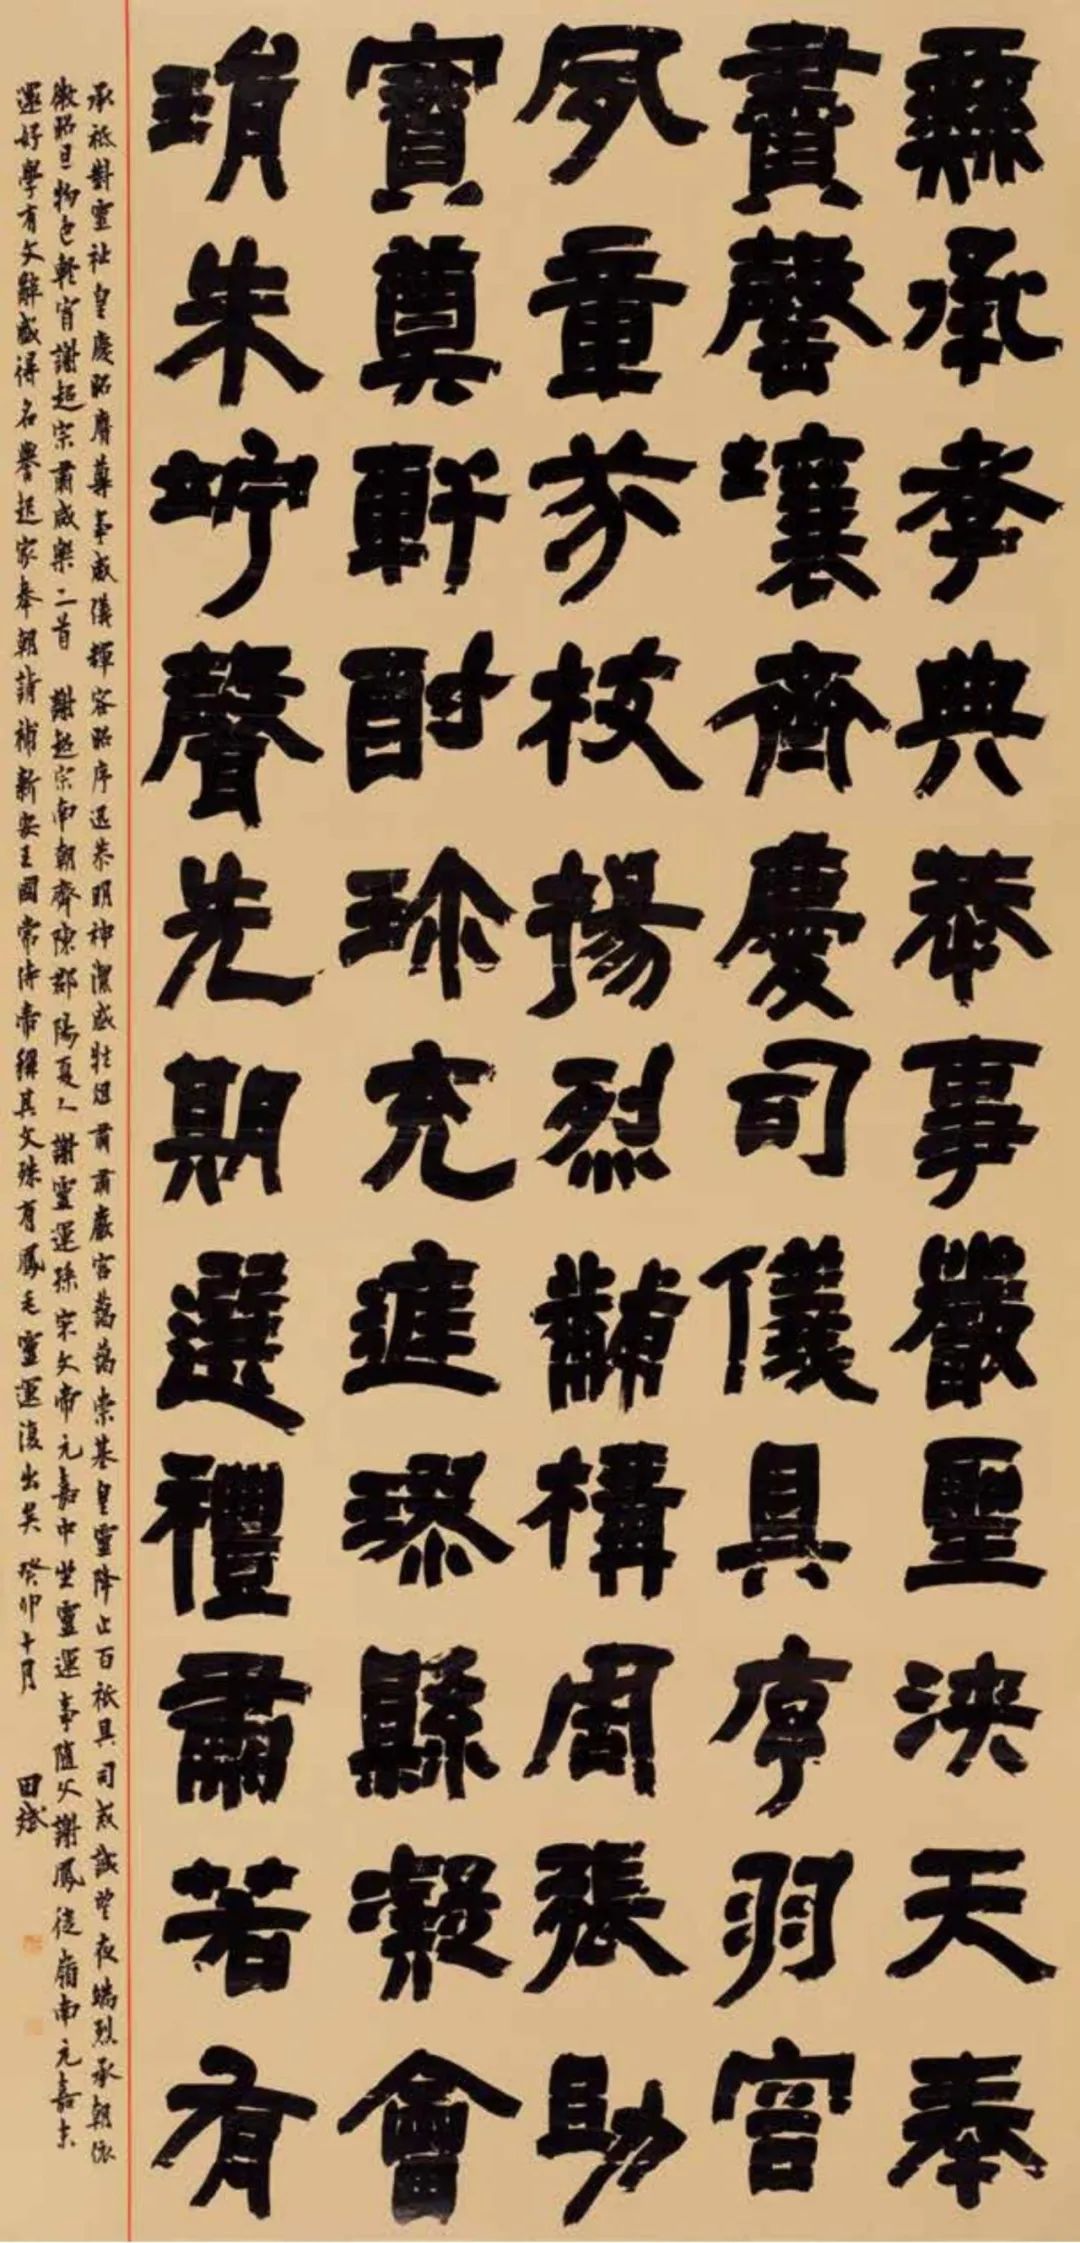 夤承孝典恭事嚴聖浹天奉
賮罄壤齊慶司儀具序羽容
夙章芬枝揚烈黼構周張助
寶奠軒酎珍充庭璆縣凝會
琄朱竚聲先期選禮肅若有
承祗對靈祉皇慶昭膺尊事威儀輝容昭序迅恭明神潔盛牲俎肅肅嚴宮藹藹崇基皇靈降止百祇具司戒誠望夜端烈承朝依
微昭旦物色輕宵謝超宗肅咸樂二首 謝超宗南朝齊陳郡陽夏人謝靈運孫宋文帝元嘉中坐靈運事隨父謝鳳徙嶺南元嘉末
還好學有文辭盛得名譽起家奉朝請補新安王國常侍帝稱其文殊有鳳毛靈運復出矣 癸卯十月 田斌